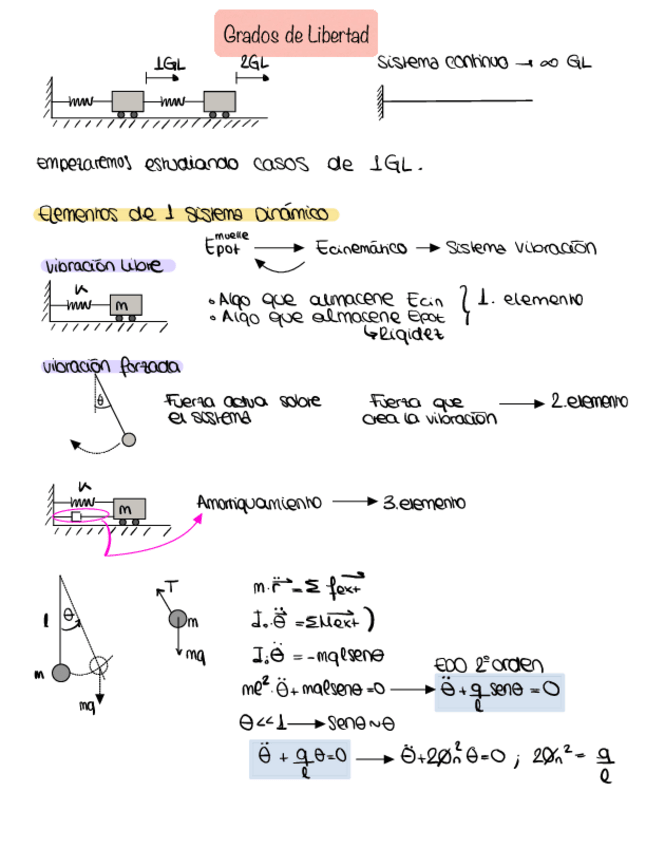 Grados de Libertad
1GL 2GL
Sistema continuo → ∞ GL
empezaremos estudiando casos de 1GL.
Elementos de 1 sistema Dinámico
muelle
Epot → Ecinemático → Sistema vibración
vibración Libre
k
m
• Algo que almacene Ecin } 1. elemento
• Algo que almacene Epot
↳ Rigidez
vibración forzada
θ
Fuerza actua sobre el sistema
Fuerza que crea la vibración → 2.elemento
k
m
Amortiguamiento → 3.elemento
l θ m mg
T m mg
m·r̈ = Σ fext
I₀·θ̈ = ΣMext )
I₀θ̈ = -mglsenθ
EDO 2º orden
ml²·θ̈ + mglsenθ = 0 → θ̈ + g/l senθ = 0
θ<<1 → senθ ~ θ
θ̈ + g/l θ = 0 → θ̈ + ω̸n² θ = 0 ; ω̸n² = g/l